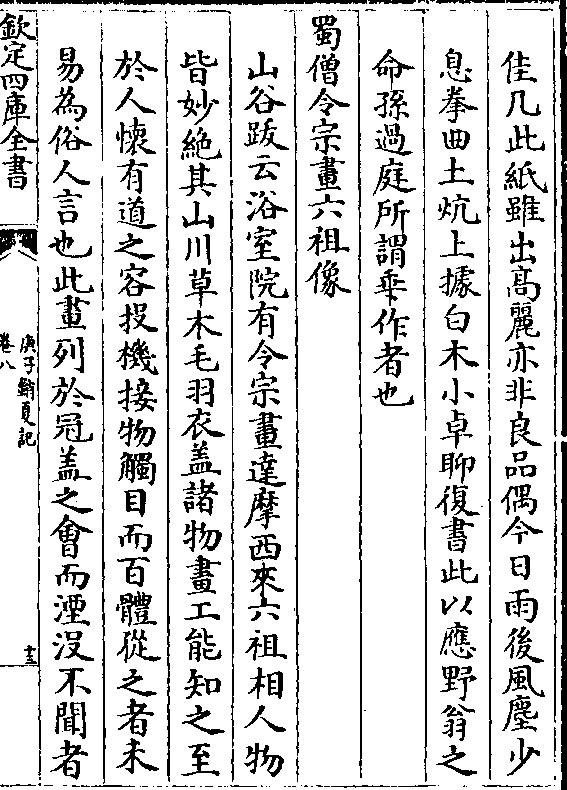 佳几此紙雖出高麗亦非良品偶今日雨後風塵少
息拳曲土炕上據白木小卓聊復書此以應野翁之
命孫過庭所謂乖作者也
蜀僧令宗畫六祖像
山谷跋云浴室院有令宗畫達摩西來六祖相人物
皆妙絶其山川草木毛羽衣盖諸物畫工能知之至
於人懷有道之容投機接物觸目而百體從之者未
易為俗人言也此畫列於冠盖之會而湮没不聞者
欽定四庫全書
庚子銷夏記
卷八
十三